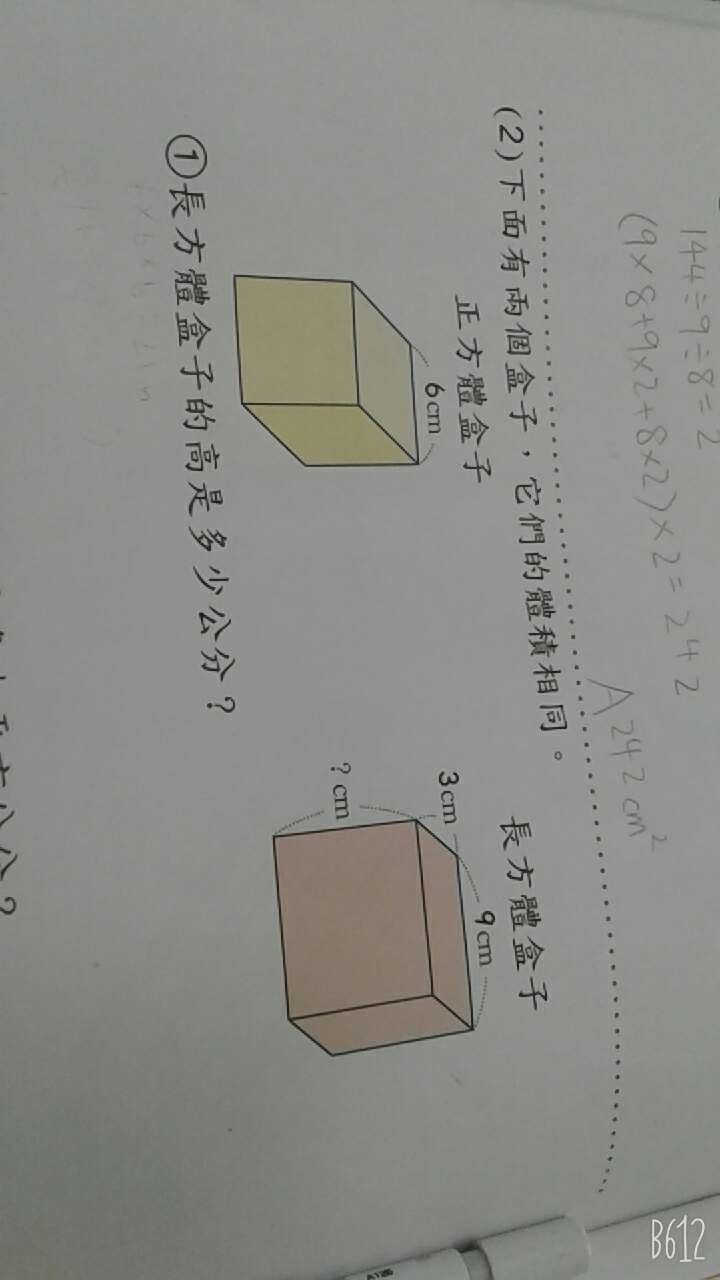 144÷9÷8=2
(9×8+9×2+8×2)×2=242
A 242cm²
(2)下面有兩個盒子，它們的體積相同。
正方體盒子
6cm
長方體盒子
9cm
3cm
?cm
①長方體盒子的高是多少公分？
B612